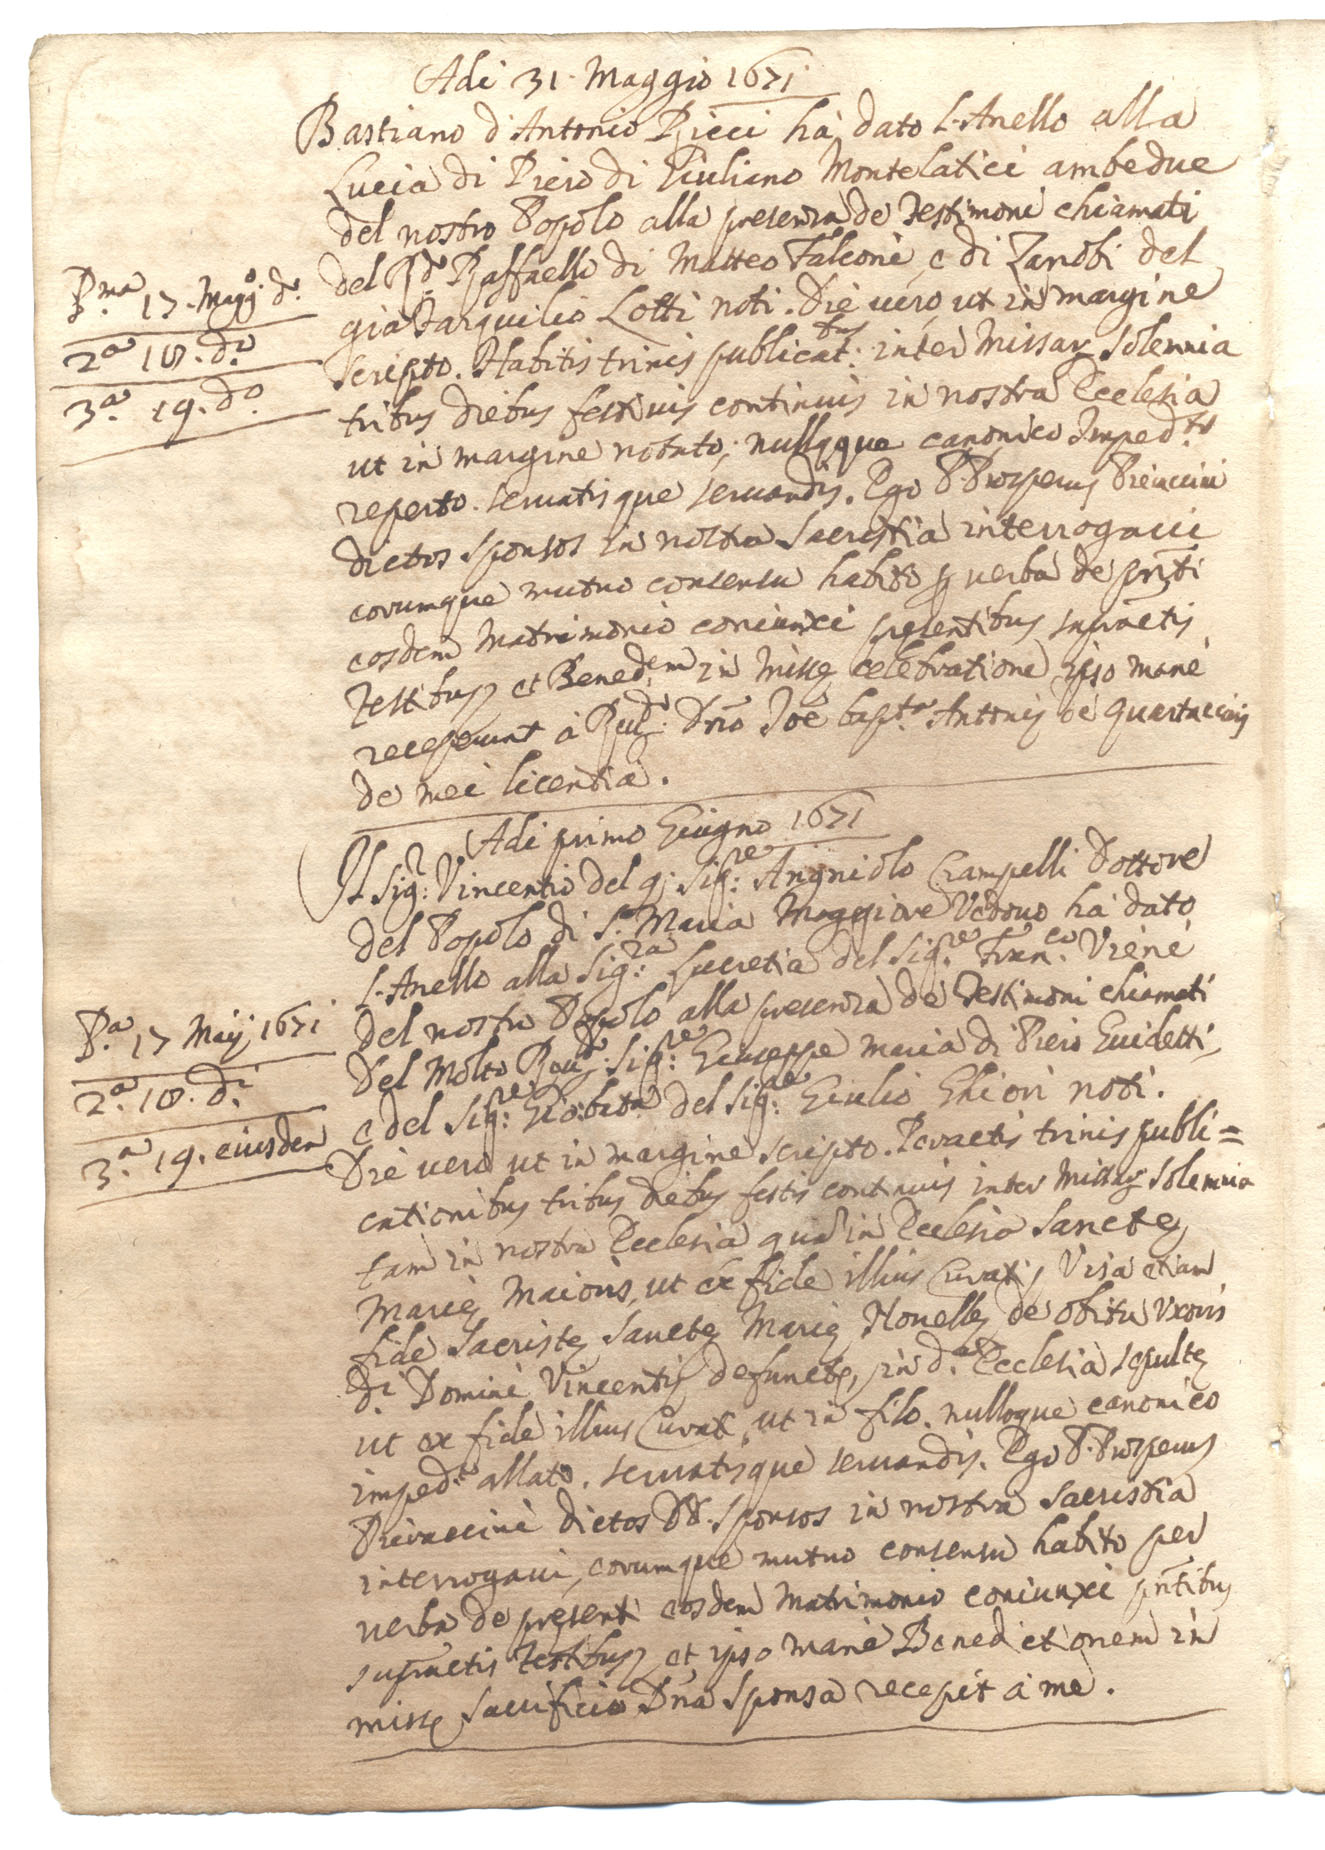 Adi 31. Maggio 1671
Bastiano d'Antonio Ricci hà dato l'Anello alla
Lucia di Piero di Giuliano Montelatici ambedue
del nostro Popolo alla presenza de Testimoni chiamati
del R.do Raffaello di Matteo Falconi, e di Zanobi del
già Tarquilio Lotti noti. Die vero, ut in margine
scripto. Habitis trinis publicat:bus inter Missar. Solemnia
tribus diebus festiuis continuis in nostra Ecclesia
ut in margine notato; nulloque canonico Imped.to
reperto. seruatisque seruandis. Ego P. Prosperus Pieraccini
dictos sponsos in nostra Sacristia interrogaui
eorumque mutuo consensu habito p verba de pnti
eosdem Matrimonio coniunxi presentibus supractis
Testibus, et Bened.em in Misse celebratione ipso mane
receperunt à Rud: Dno Joe bapta Antonij de Quartaccijs
de mei licentia.
Adi primo Giugno 1671
Il Sig.r Vincentio del q. Sig.re Angniolo Crampelli Dottore
del Popolo di S. Maria Maggiore Vedouo hà dato
l'Anello alla Sig.ra Lucretia del Sig.re Fran.co Vieni
del nostro Popolo alla presenza de Testimoni chiamati
del Molto Reu.do Sig.re Giuseppe maria di Piero Guidetti,
e del Sig.re Gio:bta del Sig.re Giulio Ghiori noti.
Die vero ut in margine scripto. Peractis trinis publi=
cationibus tribus diebus festis continuis inter Missar. Solemnia
tam in nostra Ecclesia qua in Ecclesia Sancte
Marie Maioris, ut ex fide illius Curatis Visa etiam
fide Sacriste Sancte Marie Nouelle de obitu Uxoris
di Domini Vincentij defuncte, in d.a Ecclesia sepulte
ut ex fide illius Curat. ut in filo. nulloque canonico
imped.to allato. seruatisque seruandis. Ego P. Prosperus
Pieraccini dictos DD. sponsos in nostra sacristia
interrogaui, eorumque mutuo consensu habito per
verba de presenti eosdem Matrimonio coniunxi pntibus
supractis Testibus, et ipso mane Benedictionem in
misse Sacrificio Dna Sponsa recepit à me.
P.ma 17. Magg.o d.o
2.a 18. d.o
3.a 19. d.o
P.a 17 Maij 1671
2.a 18. d.i
3.a 19. eiusdem